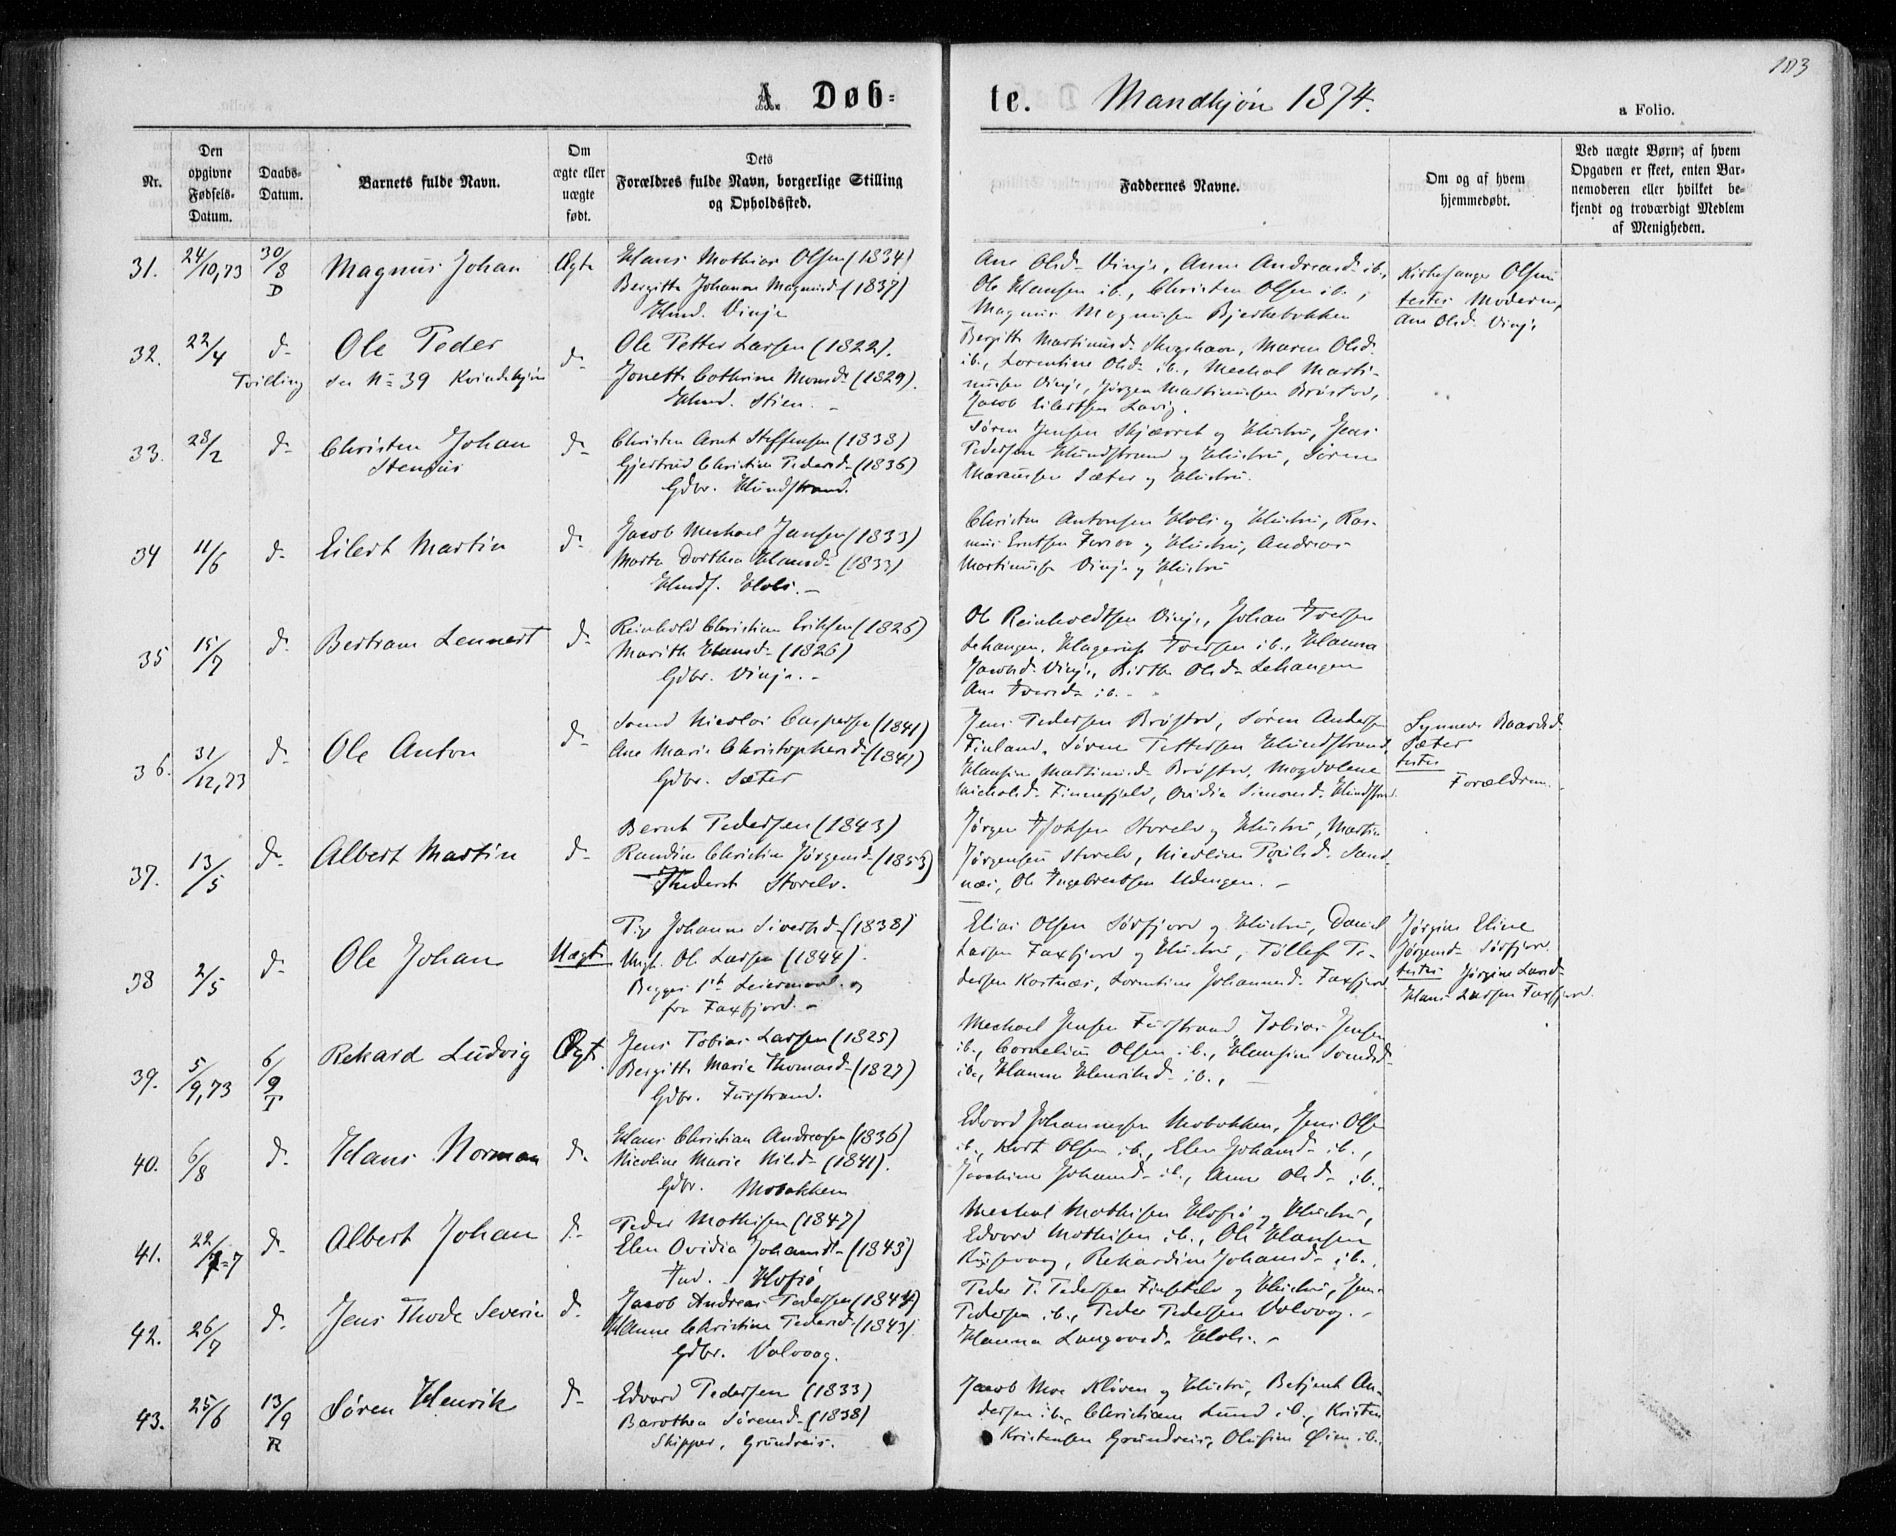 103
A. Døb-
te. Mandkjøn 1874.
a Folio.
Nr.
Den
opgivne
Fødsels-
Datum.
Daabs-
Datum.
Barnets fulde Navn.
Om
ægte eller
uægte
født.
Dets
Forældres fulde Navn, borgerlige Stilling
og Opholdssted.
Faddernes Navne.
Om og af hvem
hjemmedøbt.
Ved uægte Børn; af hvem
Opgaven er skeet, enten Bar-
nemoderen eller hvilket be-
kjendt og troværdigt Medlem
af Menigheden.
31. 24/10,73 30/8 D Magnus Johan Ægte
Hans Mathias Olsen (1834)
Bergitte Johanna Magnusd- (1837)
Hmd. Vinje
Ane Olsd- Vinje, Anne Andreasd- ib.,
Ole Hansen ib., Christen Olsen ib.,
Magnus Magnusen Bjerkebakken
Kirkesanger Olsen
testes Moderen,
Ane Olsd. Vinje
32. 22/4 d-
Tvilling
Ole Peder
see No 39 Kvindekjøn
d-
Ole Petter Larsen (1822).
Jonette Cathrine Monsd- (1829).
Hmd. Stien. -
Bergitte Martinusd- Skogshavn, Maren Olsd.
ib., Lorentine Olsd- ib., Mechal Marti-
nusen Vinje, Jørgen Martinusen Brøstad,
Jacob Eilertsen Lavig.
33. 28/2 d- Christen Johan
Stensius
d-
Christen Arnt Steffensen (1838)
Gjertrud Christine Pedersd- (1836)
Gdbr. Hundstrand.
Søren Jensen Skjærret og Hustru, Jens
Pedersen Hundstrand og Hustru, Søren
Marcussen Sæter og Hustru.
34 11/6 d- Eilert Martin d-
Jacob Mechael Jansen (1833)
Marta Dorthea Hansd- (1833)
Hmdf. Hals. -
Christen Antonsen Hals og Hustru, Ras-
mus Erntsen og Hustru, Andreas
Martinussen Vinje og Hustru
35 15/7 d- Bertram Lennert d-
Reinhold Christian Eriksen (1826)
Marith Hansd- (1826)
Gdbr. Vinje. -
Ole Reinholdtsen Vinje, Johan Iversen
Lekangen, Hagerup Iversen ib., Hanna
Jacobsd- Vinje, Birthe Olsd- Lekangen
Ane Iversd- ib. -
36. 31/12,73 d- Ole Anton d-
Nicolai Caspersen (1841)
Ane Marie Christophersd- (1841)
Gdbr. Sæter
Jens Pedersen Brøstad, Søren Andersen
Finland, Søren Pettersen Hundstrand,
Hansine Martinusd- Brøstad, Magdalene
Nicholsd- Finnefjeld, Ovidia Simonsd- Hundstrand.
Synneve Baardsd.
Sæter
testes
Forældrene.
37. 13/5 d- Albert Martin d-
Bernt Pedersen (1843)
Randine Christine Jørgensd- (1853)
Inderst Storelv.
Jørgen Storelv og Hustru, Martin
Jørgensen Storelv, Nicoline Poulsd- Sand-
næs, Ole Ingebrectsen Udengen. -
38 2/5 d- Ole Johan Uægte
Pige Johanna Sivertsd- (1838)
Ungk. Ole Larsen (1844).
Begges 1ste Leiermaal. og
fra Faxfjord. -
Elias Olsen Sørfjord og Hustru, Daniel
Larsen Faxfjord og Hustru, Tollef Pe-
dersen Kortnæs, Lorentine Johannesd- Faxfjord
Jørgine Eline
Jørgensd- Sørfjord.
testes Jørgine Larsd-
Hans Larsen Faxfjord.
39. 5/9,73 6/9 T Rekard Ludvig Ægte
Jens Tobias Larsen (1825)
Bergitte Marie Thomasd- (1827)
Gdbr. Furstrand.
Mechael Jensen Furstrand, Tobias Jensen
ib., Cornelius Olsen ib., Hansine
ib., Hanne Henriksd- ib., -
40. 6/8 d. Hans Norman d.
Hans Christian Andreasen (1836)
Nicoline Marie Nilsd- (1841).
Gdbr. Mobakken
Edvard Johannessen Mobakken, Jens Olsen
ib., Kort Olsen ib., Elen Johansd- ib.,
Joachine Johansd- ib., Anne Olsd- ib.,
41. 22/7 d- Albert Johan d-
Peder Mathisen (1847)
Elen Ovidia Johansd- (1843)
Ind. Hofsø
Mechal Mathisen Hofsø og Hustru,
Edvard Mathisen ib., Ole Hansen
Rekardine Johansd- ib.
42. 26/7 d. Jens Thode Severin d.
Jacob Andreas Pedersen (1844)
Hanne Christine Pedersd- (1843).
Gdbr. Valvaag.
Peder P. Pedersen og Hustru, Jens
Pedersen ib., Peder Pedersen Valvaag. -
Hanna Hals. -
43. 25/6 13/9 R Søren Henrik d-
Edvard Pedersen (1833)
Barothea Sørensd- (1838)
Skipper, Grundreis.
Jacob Moe Kløven og Hustru, Betjent An-
dersen ib., Christiane Lund ib., Kristen
Kristensen Grundreis, Olufine Øien ib.,